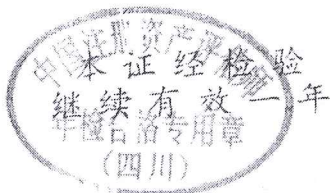 中国注册资产评估师
本证经检验
继续有效一年
年检合格专用章
(四川)